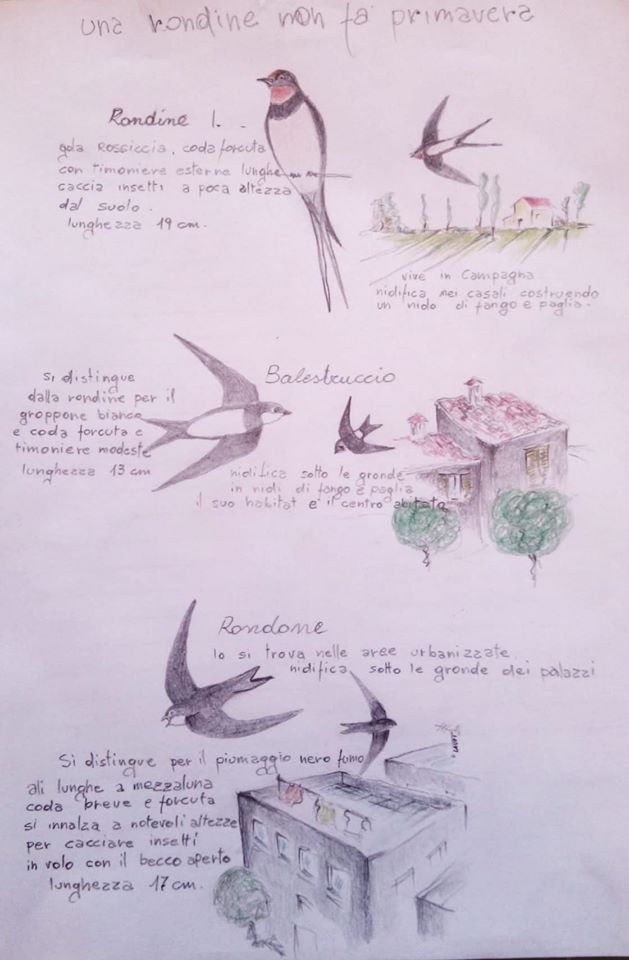 una rondine non fa' primavera
Rondine 1. -
gola rossiccia, coda forcuta
con timoniere esterne lunghe
caccia insetti a poca altezza
dal suolo.
lunghezza 19 cm.
vive in campagna
nidifica nei casali costruendo
un nido di fango e paglia.
Balestruccio
si distingue
dalla rondine per il
groppone bianco
e coda forcuta e
timoniere modeste
lunghezza 13 cm
nidifica sotto le gronde
in nidi di fango e paglia
il suo habitat e' il centro abitato
Rondone
lo si trova nelle aree urbanizzate,
nidifica sotto le gronde dei palazzi
Si distingue per il piumaggio nero fumo
ali lunghe a mezzaluna
coda breve e forcuta
si innalza a notevoli altezze
per cacciare insetti
in volo con il becco aperto
lunghezza 17 cm.